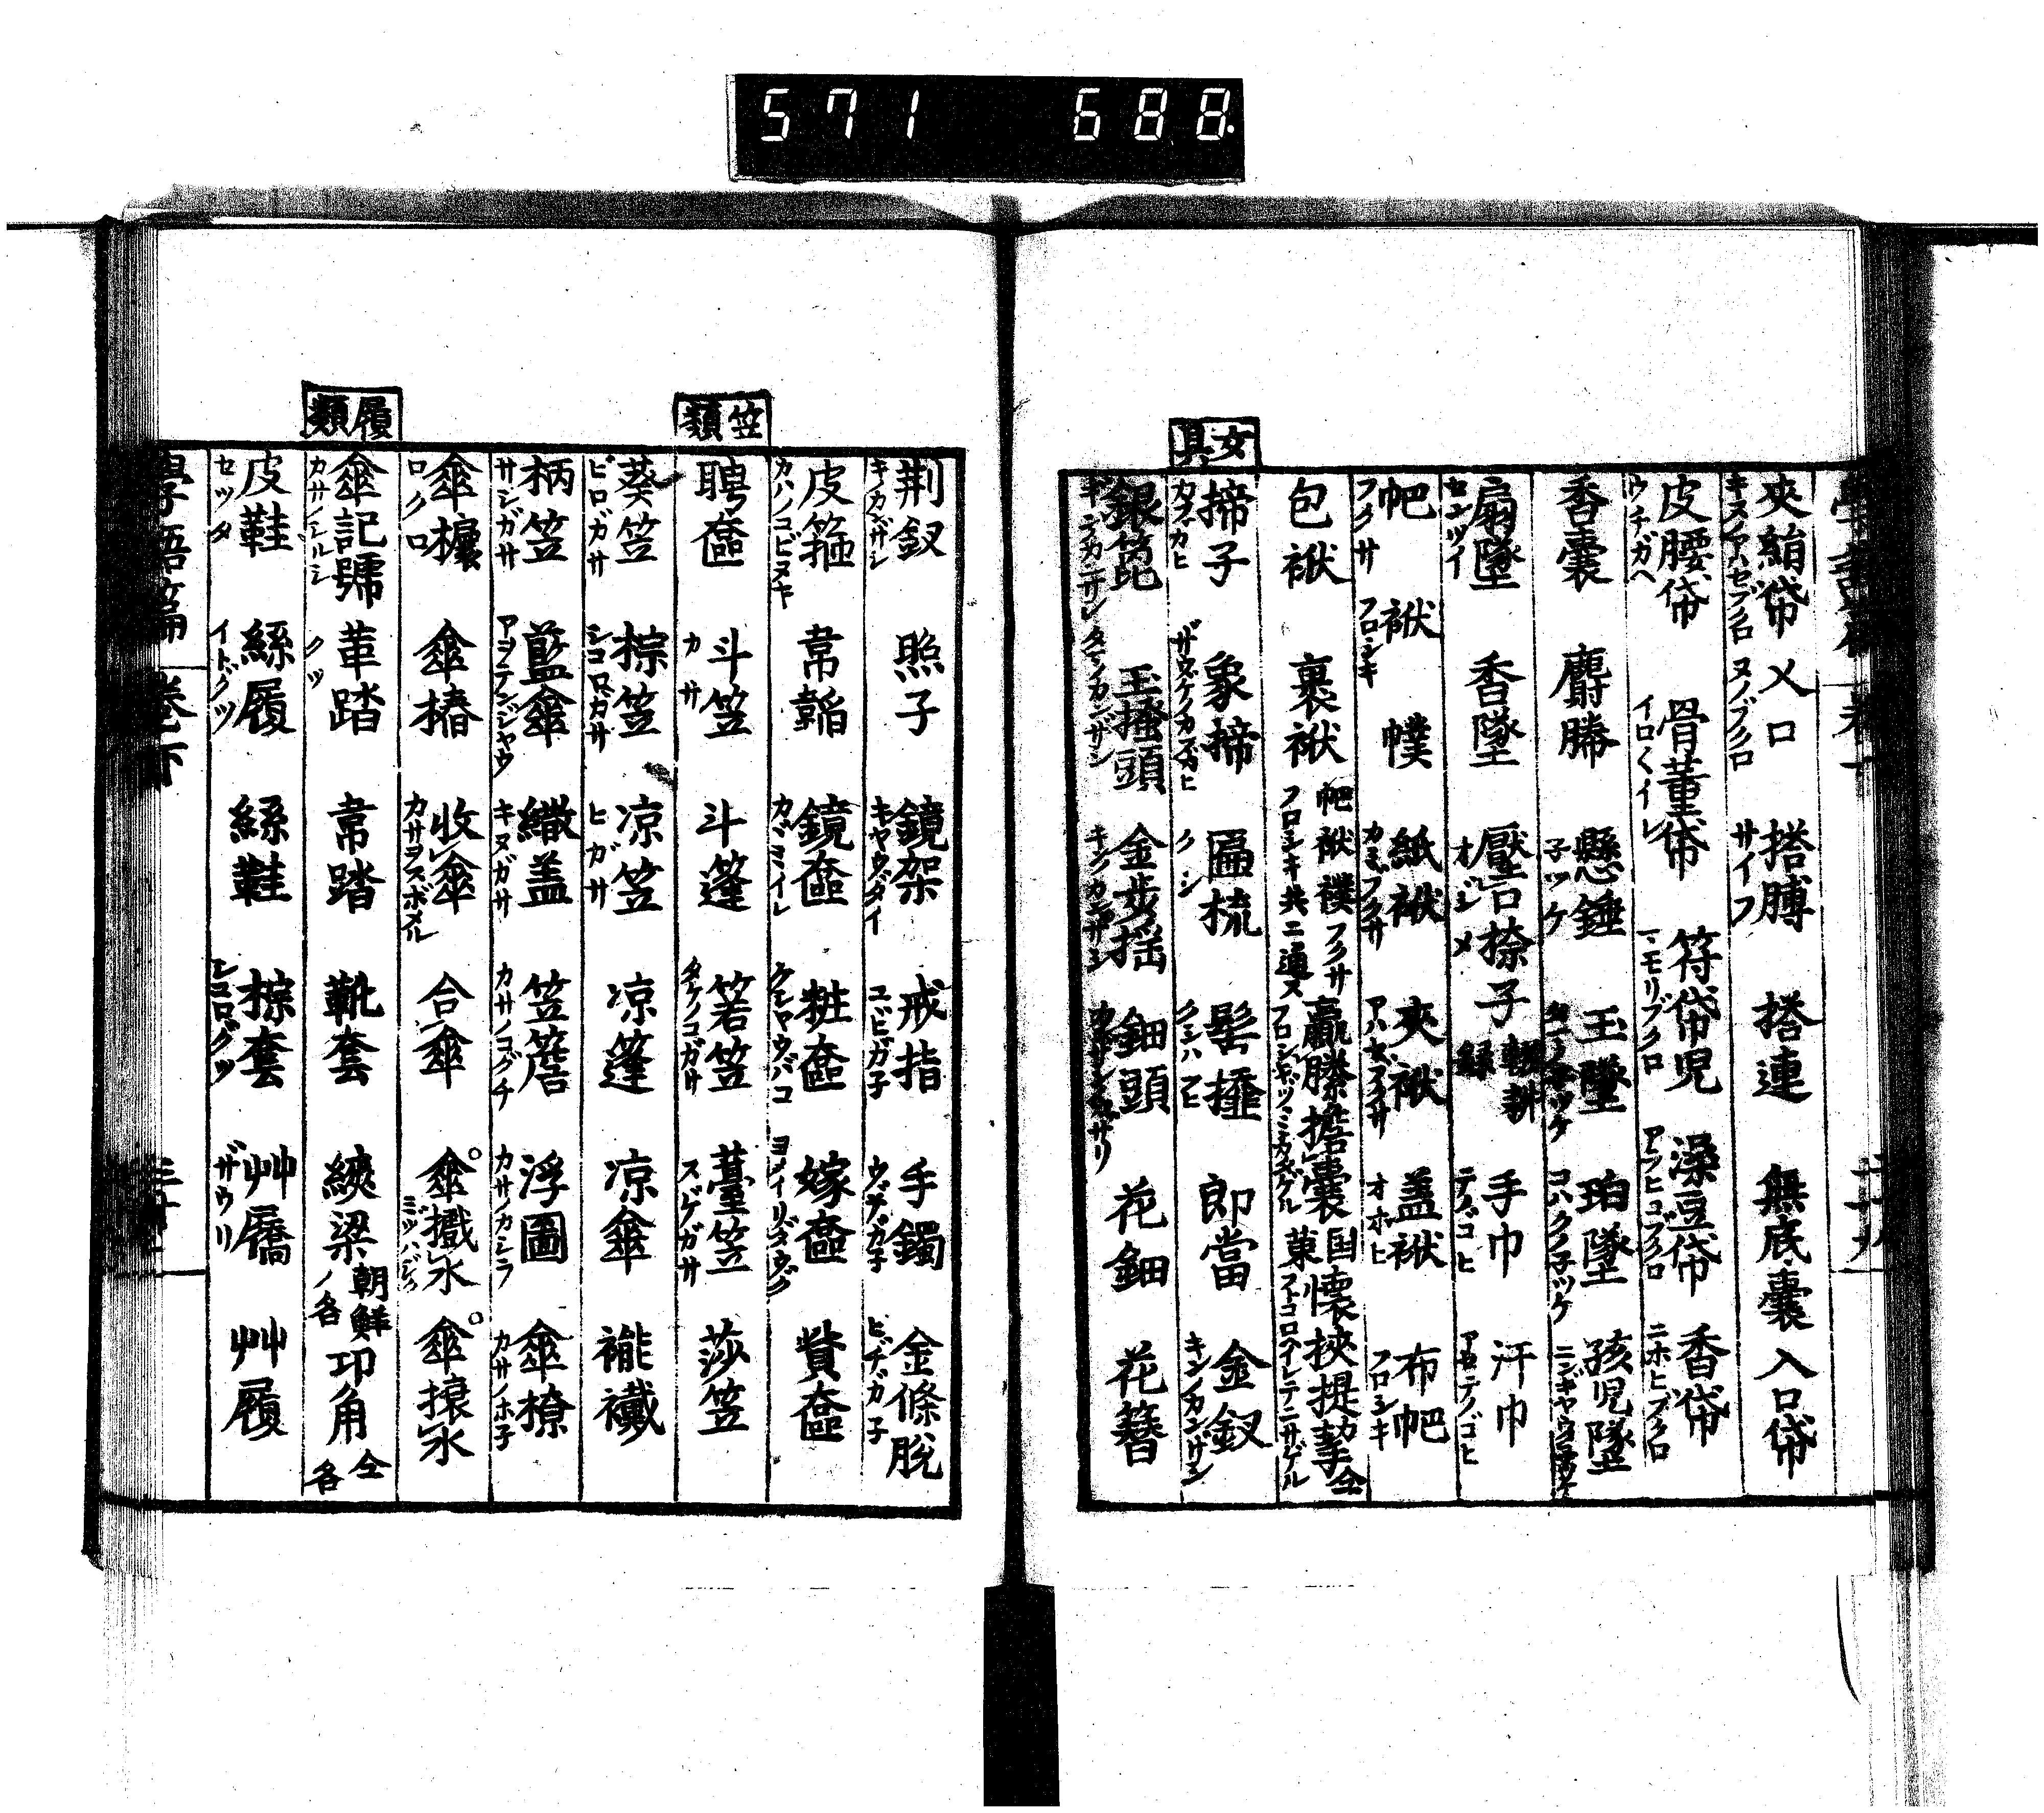 571 688
夾絹帒 メ口 搭膊 搭連 無底囊 入口帒
ヌノブクロ サイフ
皮腰帒 骨董帒 符帒児 澡豆帒 香帒
ウチガヘ イロ〱イレ マモリブクロ アラヒコブクロ ニホヒブクロ
香囊 麝幐 懸錘 玉墜 珀墜 孩児墜
子ツケ コハクノ子ツケ
扇墜 香墜 壓口捺子 手巾 汗巾
センツイ オジメ テノゴヒ アセテノゴヒ
帊 袱 幞 紙袱 夾袱 盖袱 布帊
フクサ フロシキ カミフクサ アハセフクサ オホヒ フロシキ
包袱 裹袱 帊袱襆フクサフロシキ共ニ通ス 贏縢擔囊 国 懐挾提挈 仝
女具
揥子 象揥 匾梳 髻 郎當 金釵
ザウゲノカヅカヒ クシ キンカンザシ
銀箆 玉搔頭 金步揺 鈿頭 花鈿 花簪
荆釵 照子 鏡架 戒指 手鐲 金條脫
キカンザシ キヤウダイ ユビガ子 ウデガ子 ヒヂガ子
皮箍 韋韜 鏡奩 粧奩 嫁奩 賛奩
カハノコビヌキ カヾミイレ ケシヤウバコ ヨメイリダウグ
笠類
聘奩 斗笠 斗篷 箬笠 薹笠 莎笠
カサ タケノコガサ スゲガサ
葵笠 棕笠 凉笠 凉篷 凉傘 褦襶
ビロガサ シユロガサ ヒガサ
柄笠 藍傘 繖盖 笠簷 浮圖 傘橑
サシガサ アヲテンジヤウ キヌガサ カサノコグチ カサノカシラ カサノホ子
傘欀 傘樁 收傘 合傘 傘㩉水 傘㨍水
ロクロ カサヲスボメル
履類
傘記號 革踏 韋踏 靴套 綊梁 朝鮮ノ名 卭角 仝名
カサノシルシ クツ
皮鞋 絲履 絲鞋 棕套 艸屩 艸履
セツタ イトグツ シユログツ ザウリ
學語篇 卷下